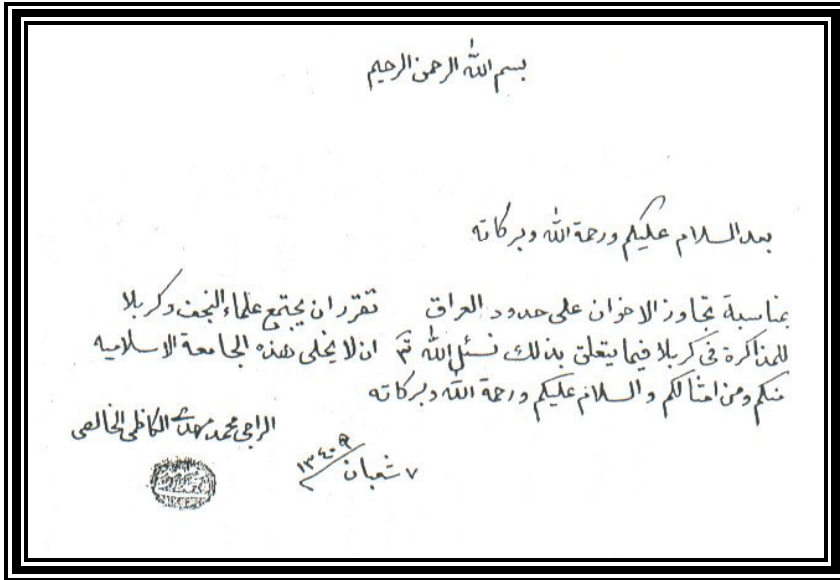 بسم الله الرحمن الرحيم
بعد السلام عليكم ورحمة الله وبركاته
بمناسبة تجاوز الاخوان على حدود العراق تقرر ان يجتمع علماء النجف وكربلا
للمذاكرة في كربلا فيما يتعلق بذلك نسئل الله تم ان لا يخلى هذه الجامعة الاسلاميه
منكم ومن امثالكم والسلام عليكم ورحمة الله وبركاته
الراجي محمد مهدي الكاظمي الخالصي
٧ شعبان ١٣٤٠